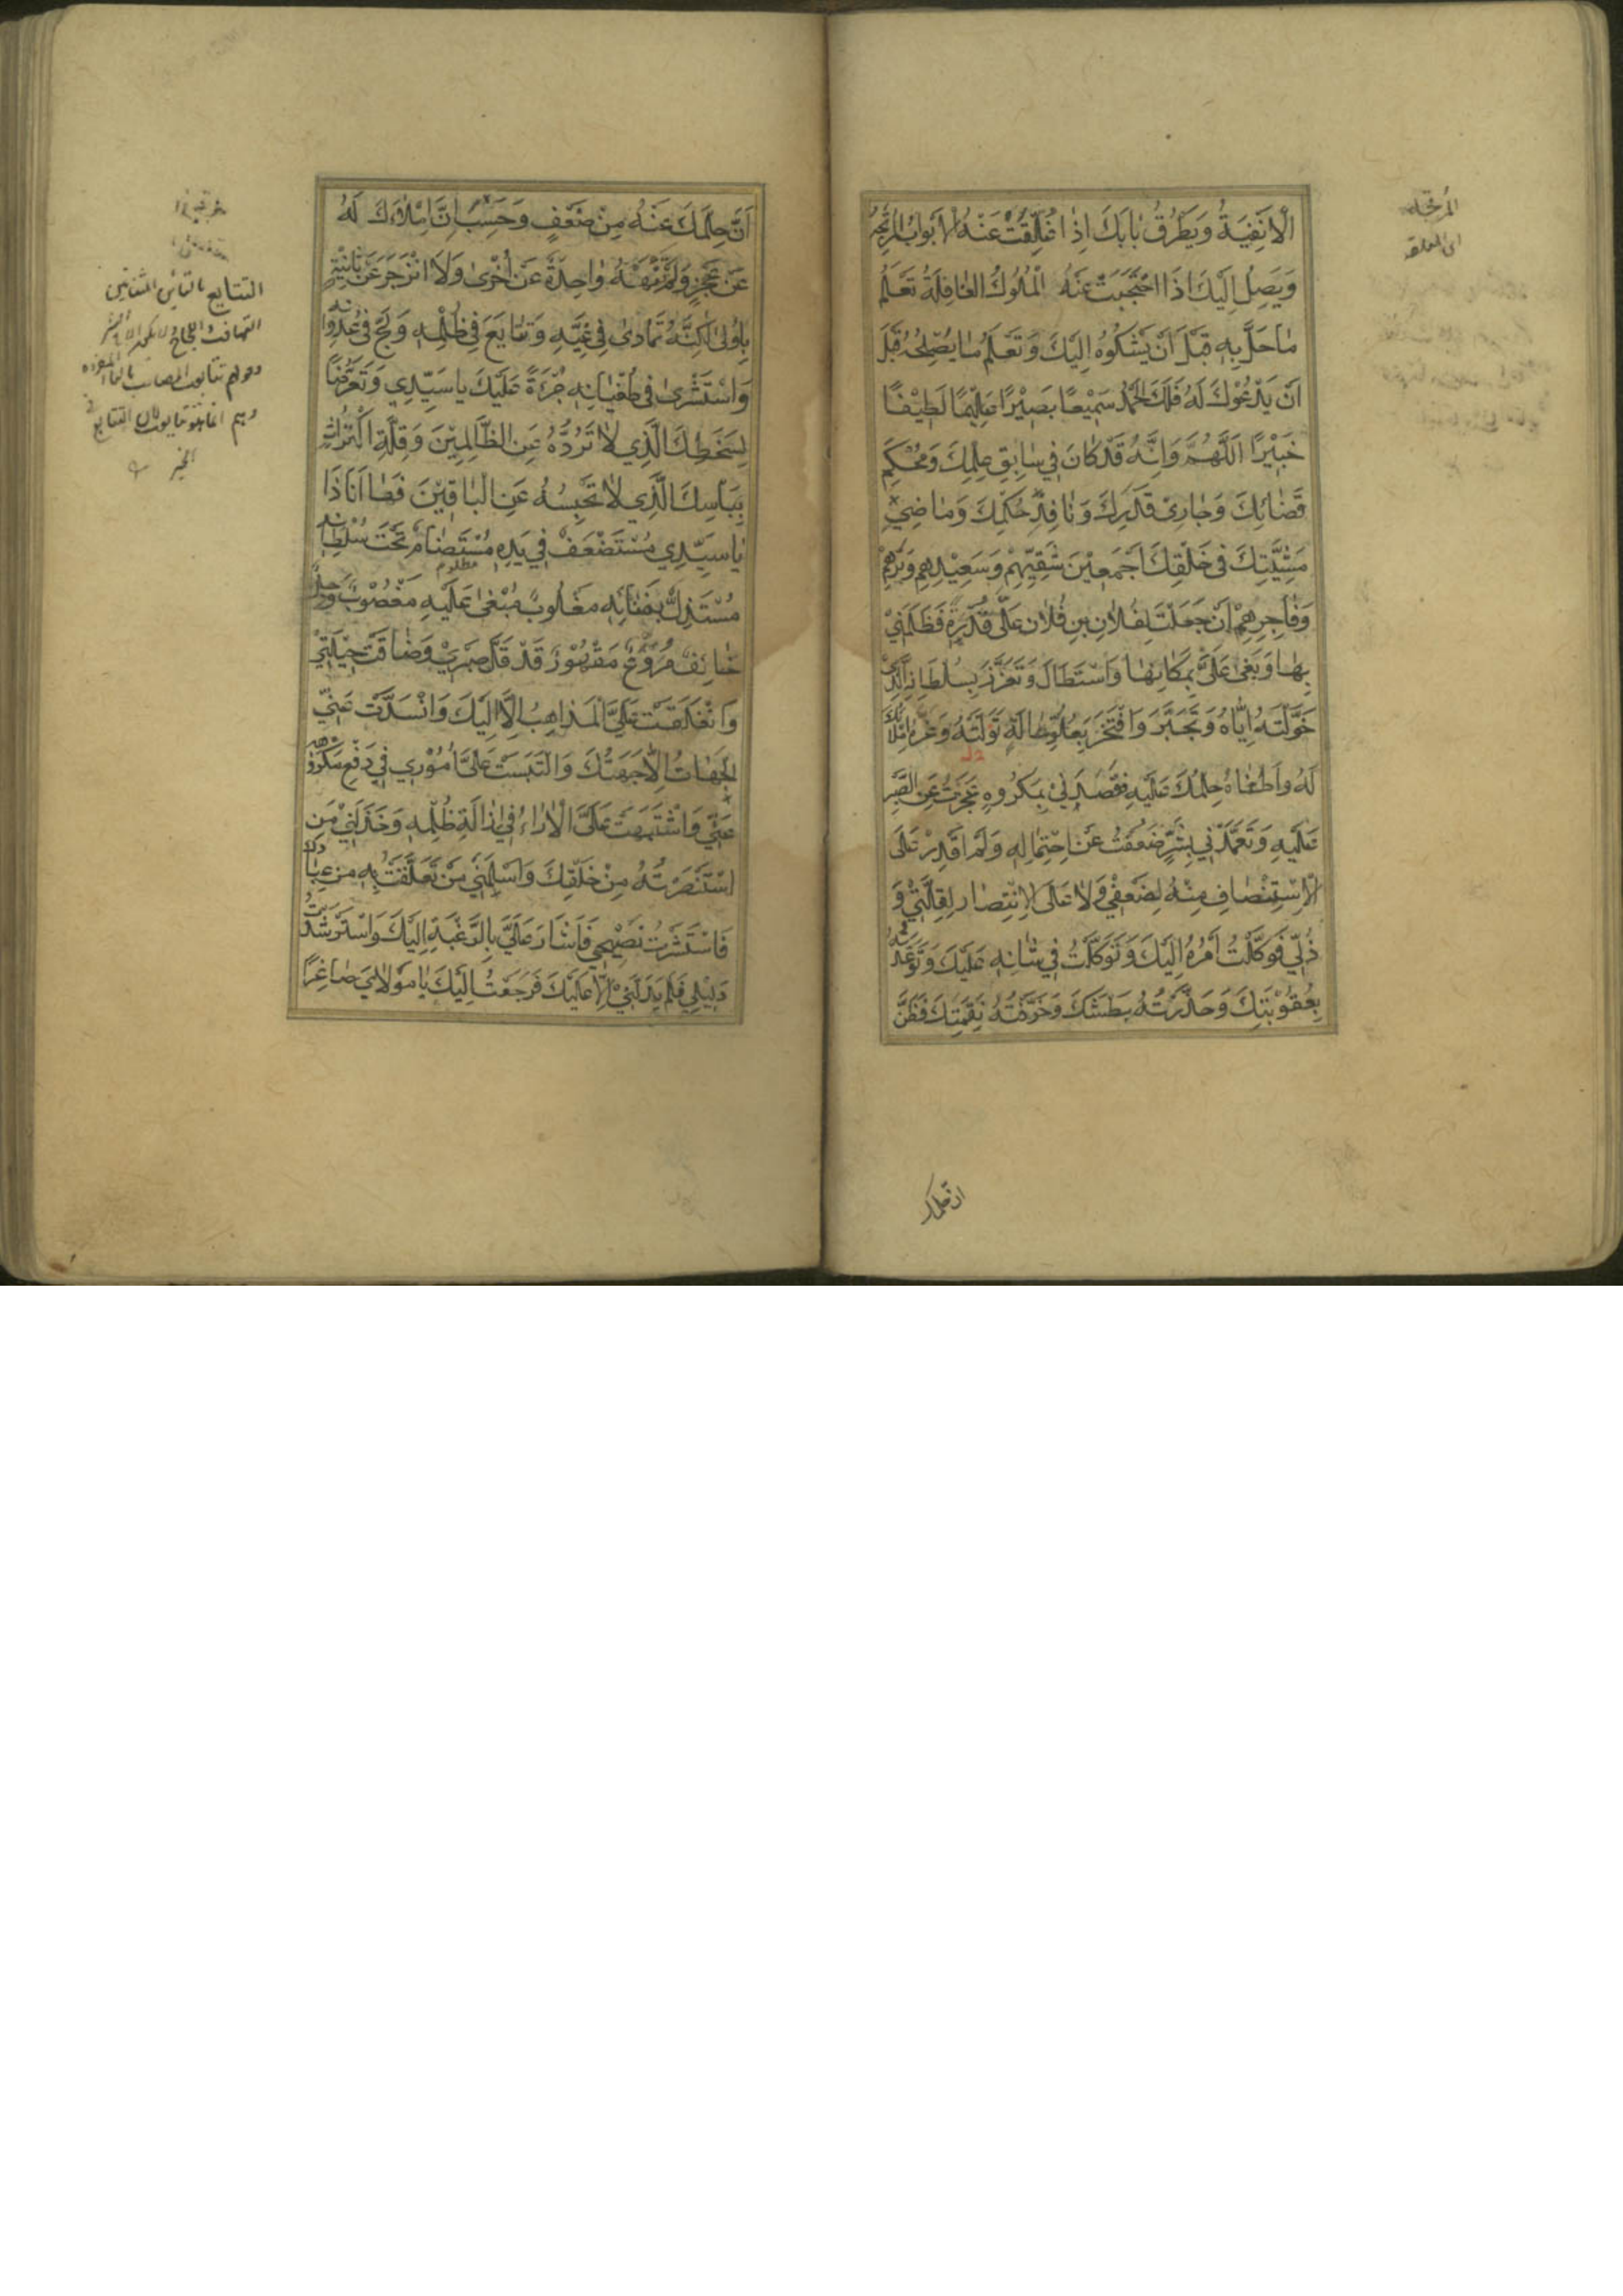 الْاَفْنِيَةُ وَيَطْرُقُ بابَكَ اِذا غُلِّقَتْ عَنْهُ الْاَبْوابُ الْمُرْتَجَةُ
وَيَصِلُ اِلَيْكَ اِذَا احْتَجَبَتْ عَنْهُ الْمُلُوكُ الْغافِلَةُ تَعْلَمُ
ما حَلَّ بِهِ قَبْلَ اَنْ يَشْكُوهُ اِلَيْكَ وَتَعْلَمُ ما يُصْلِحُهُ قَبْلَ
اَنْ يَدْعُوَكَ لَهُ فَلَكَ الْحَمْدُ سَمِيْعًا بَصِيْرًا عَلِيْمًا لَطِيْفًا
خَبِيْرًا اَللّٰهُمَّ وَاِنَّهُ قَدْ كانَ في سابِقِ عِلْمِكَ وَمُحْكَمِ
قَضائِكَ وَجارِيْ قَدَرِكَ وَنافِذِ حُكْمِكَ وَماضِيْ
مَشِيَّتِكَ في خَلْقِكَ اَجْمَعِيْنَ شَقِيِّهِمْ وَسَعِيْدِهِمْ وَبَرِّهِمْ
وَفاجِرِهِمْ اَنْ جَعَلْتَ لِفُلانِ بنِ فُلانٍ عَلَيَّ قُدْرَةً فَظَلَمَنِيْ
بِها وَبَغى عَلَيَّ بِمَكانِها وَاسْتَطالَ وَتَعَزَّزَ بِسُلْطانِهِ الَّذِيْ
خَوَّلْتَهُ اِيّاهُ وَتَجَبَّرَ وَافْتَخَرَ بِعُلُوِّ حالَةٍ نَوَّلْتَهُ وَغَرَّهُ اِمْلاؤُكَ
لَهُ وَاَطْغاهُ حِلْمُكَ عَلَيْهِ فَقَصَدَنِيْ بِمَكْرُوهٍ عَجَزْتُ عَنِ الصَّبْرِ
عَلَيْهِ وَتَعَمَّدَنِي بِشَرٍّ ضَعُفْتُ عَنِ احْتِمالِهِ وَلَمْ اَقْدِرْ عَلَى
الْاِسْتِنْصافِ مِنْهُ لِضَعْفِيْ وَلا عَلَى الْاِنْتِصارِ لِقِلَّتِيْ وَ
ذُلِّي فَوَكَّلْتُ اَمْرَهُ اِلَيْكَ وَتَوَكَّلْتُ في شانِهِ عَلَيْكَ وَتَوَعَّدْتُهُ
بِعُقُوْبَتِكَ وَحَذَّرْتُهُ بَطْشَكَ وَخَوَّفْتُهُ نِقْمَتَكَ فَظَنَّ
المرتجة
اى المغلقه
ان حلمك
اَنَّ حِلْمَكَ عَنْهُ مِنْ ضَعْفٍ وَحَسِبَ اَنَّ اِمْلاءَكَ لَهُ
عَنْ عَجْزٍ وَلَمْ تَنْهَهُ واحِدَةٌ عَنْ اُخْرى وَلَا انْزَجَرَ عَنْ ثانِيَةٍ
بِاُولى لكِنَّهُ تَمادى في غَيِّهِ وَتَتايَعَ في ظُلْمِهِ وَلَجَّ في عُدْوانِهِ
وَاسْتَشْرى في طُغْيانِهِ جُرْءَةً عَلَيْكَ يا سَيِّدِي وَتَعَرُّضًا
لِسَخَطِكَ الَّذِي لا تَرُدُّهُ عَنِ الظّالِمِيْنَ وَقِلَّةِ اكْتِراثٍ
بِبَأْسِكَ الَّذِي لا تَحْبِسُهُ عَنِ الْباغِيْنَ فَها اَنَا ذا
يا سَيِّدِي مُسْتَضْعَفٌ في يَدِهِ مُسْتَضامٌ تَحْتَ سُلْطانِهِ
مظلوم
مُسْتَذَلٌّ بِفَنائِهِ مَغْلُوبٌ مَبْغِيٌّ عَلَيْهِ مَغْضُوبٌ وَجِلٌ
خائِفٌ مُرَوَّعٌ مَقْهُوْرٌ قَدْ قَلَّ صَبْرِيْ وَضاقَتْ حِيْلَتِيْ
وَانْغَلَقَتْ عَلَيَّ الْمَذاهِبُ اِلّا اِلَيْكَ وَانْسَدَّتْ عَنِّيْ
الْجِهاتُ اِلّا جِهَتُكَ وَالْتَبَسَتْ عَلَيَّ اُمُوْرِي في دَفْعِ مَكْرُوهِهِ
عَنِّي وَاشْتَبَهَتْ عَلَيَّ الْآراءُ في اِزالَةِ ظُلْمِهِ وَخَذَلَنِي مَنِ
اسْتَنْصَرْتُهُ مِنْ خَلْقِكَ وَاَسْلَمَنِي مَنْ تَعَلَّقْتُ بِهِ مِنْ عِبادِكَ
فَاسْتَشَرْتُ نَصِيْحِي فَاَشارَ عَلَيَّ بِالرَّغْبَةِ اِلَيْكَ وَاسْتَرْشَدْتُ
دَلِيْلِي فَلَمْ يَدُلَّنِيْ اِلّا عَلَيْكَ فَرَجَعْتُ اِلَيْكَ يا مَوْلايَ صاغِرًا
التتايع بالتاء
التهافت واللجاج